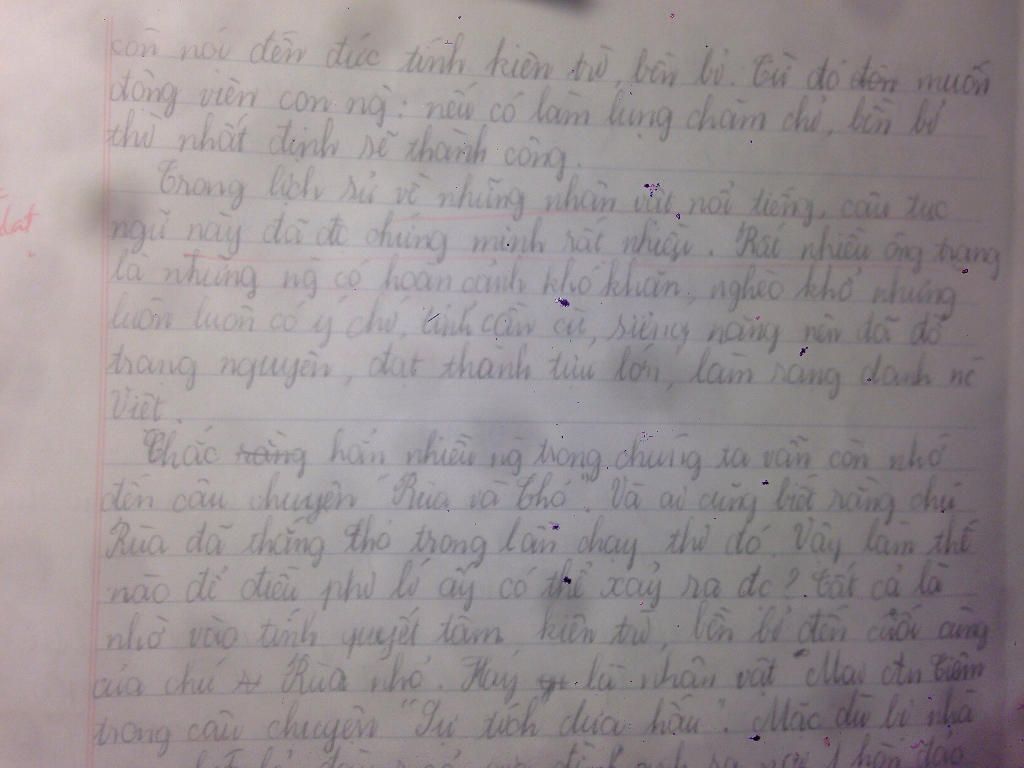 còn nói đến đức tính kiên trì, bền bỉ. Từ đó đến muốn
động viên con ng: nếu có làm lụng chăm chỉ, bền bỉ
thì nhất định sẽ thành công.
Trong lịch sử về những nhân vật nổi tiếng, câu tục
đạt
ngữ này đã đc chứng minh rất nhiều. Rất nhiều ông trạng
là những ng có hoàn cảnh khó khăn, nghèo khổ nhưng
luôn luôn có ý chí, tính cần cù, siêng năng nên đã đỗ
trạng nguyên, đạt thành tựu lớn, làm rạng danh nc
Việt.
Chắc rằng hẳn nhiều ng trong chúng ta vẫn còn nhớ
đến câu chuyện "Rùa và Thỏ". Và ai cũng biết rằng chú
Rùa đã thắng thỏ trong lần chạy thi đó. Vậy làm thế
nào để điều phi lí ấy có thể xảy ra đc? Tất cả là
nhờ vào tính quyết tâm, kiên trì, bền bỉ đến cuối cùng
của chú Rùa nhỏ. Hay là nhân vật Mai An Tiêm
trong câu chuyện "Sự tích dưa hấu". Mặc dù bị nhà
ra nơi hòn đảo